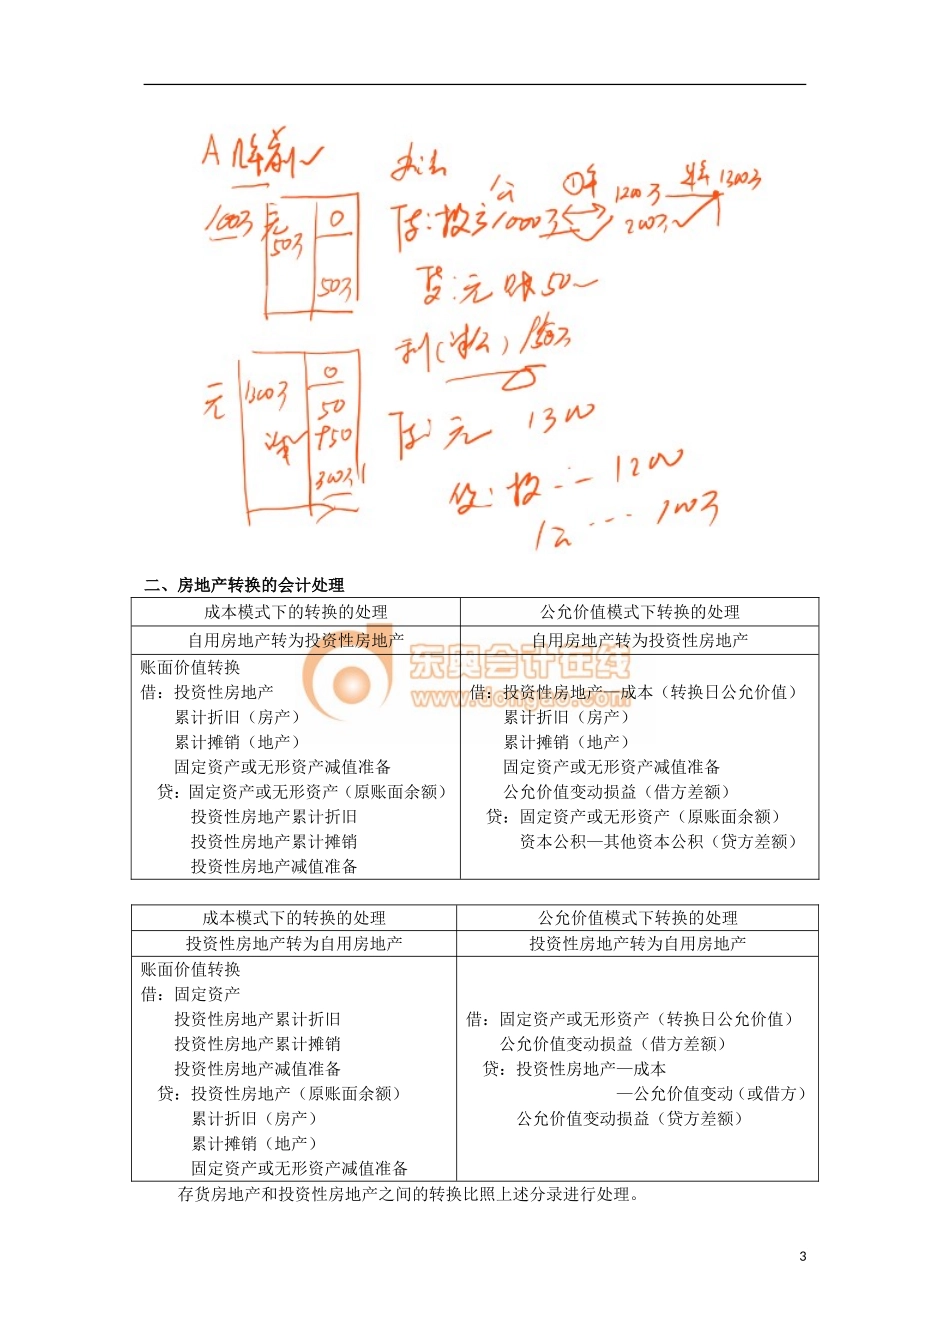 A
1000万
0
50万
50万
公
①年
借：投 1000万
1200万
1300万
200万
50
0
1300万
50
950
300万
1300
1200
100万
二、房地产转换的会计处理
成本模式下的转换的处理
公允价值模式下转换的处理
自用房地产转为投资性房地产
自用房地产转为投资性房地产
账面价值转换
借：投资性房地产
累计折旧（房产）
累计摊销（地产）
固定资产或无形资产减值准备
贷：固定资产或无形资产（原账面余额）
投资性房地产累计折旧
投资性房地产累计摊销
投资性房地产减值准备
借：投资性房地产—成本（转换日公允价值）
累计折旧（房产）
累计摊销（地产）
固定资产或无形资产减值准备
公允价值变动损益（借方差额）
贷：固定资产或无形资产（原账面余额）
资本公积—其他资本公积（贷方差额）
东奥会计在线
www.dongao.com
成本模式下的转换的处理
公允价值模式下转换的处理
投资性房地产转为自用房地产
投资性房地产转为自用房地产
账面价值转换
借：固定资产
投资性房地产累计折旧
投资性房地产累计摊销
投资性房地产减值准备
贷：投资性房地产（原账面余额）
累计折旧（房产）
累计摊销（地产）
固定资产或无形资产减值准备
借：固定资产或无形资产（转换日公允价值）
公允价值变动损益（借方差额）
贷：投资性房地产—成本
—公允价值变动（或借方）
公允价值变动损益（贷方差额）
存货房地产和投资性房地产之间的转换比照上述分录进行处理。
3